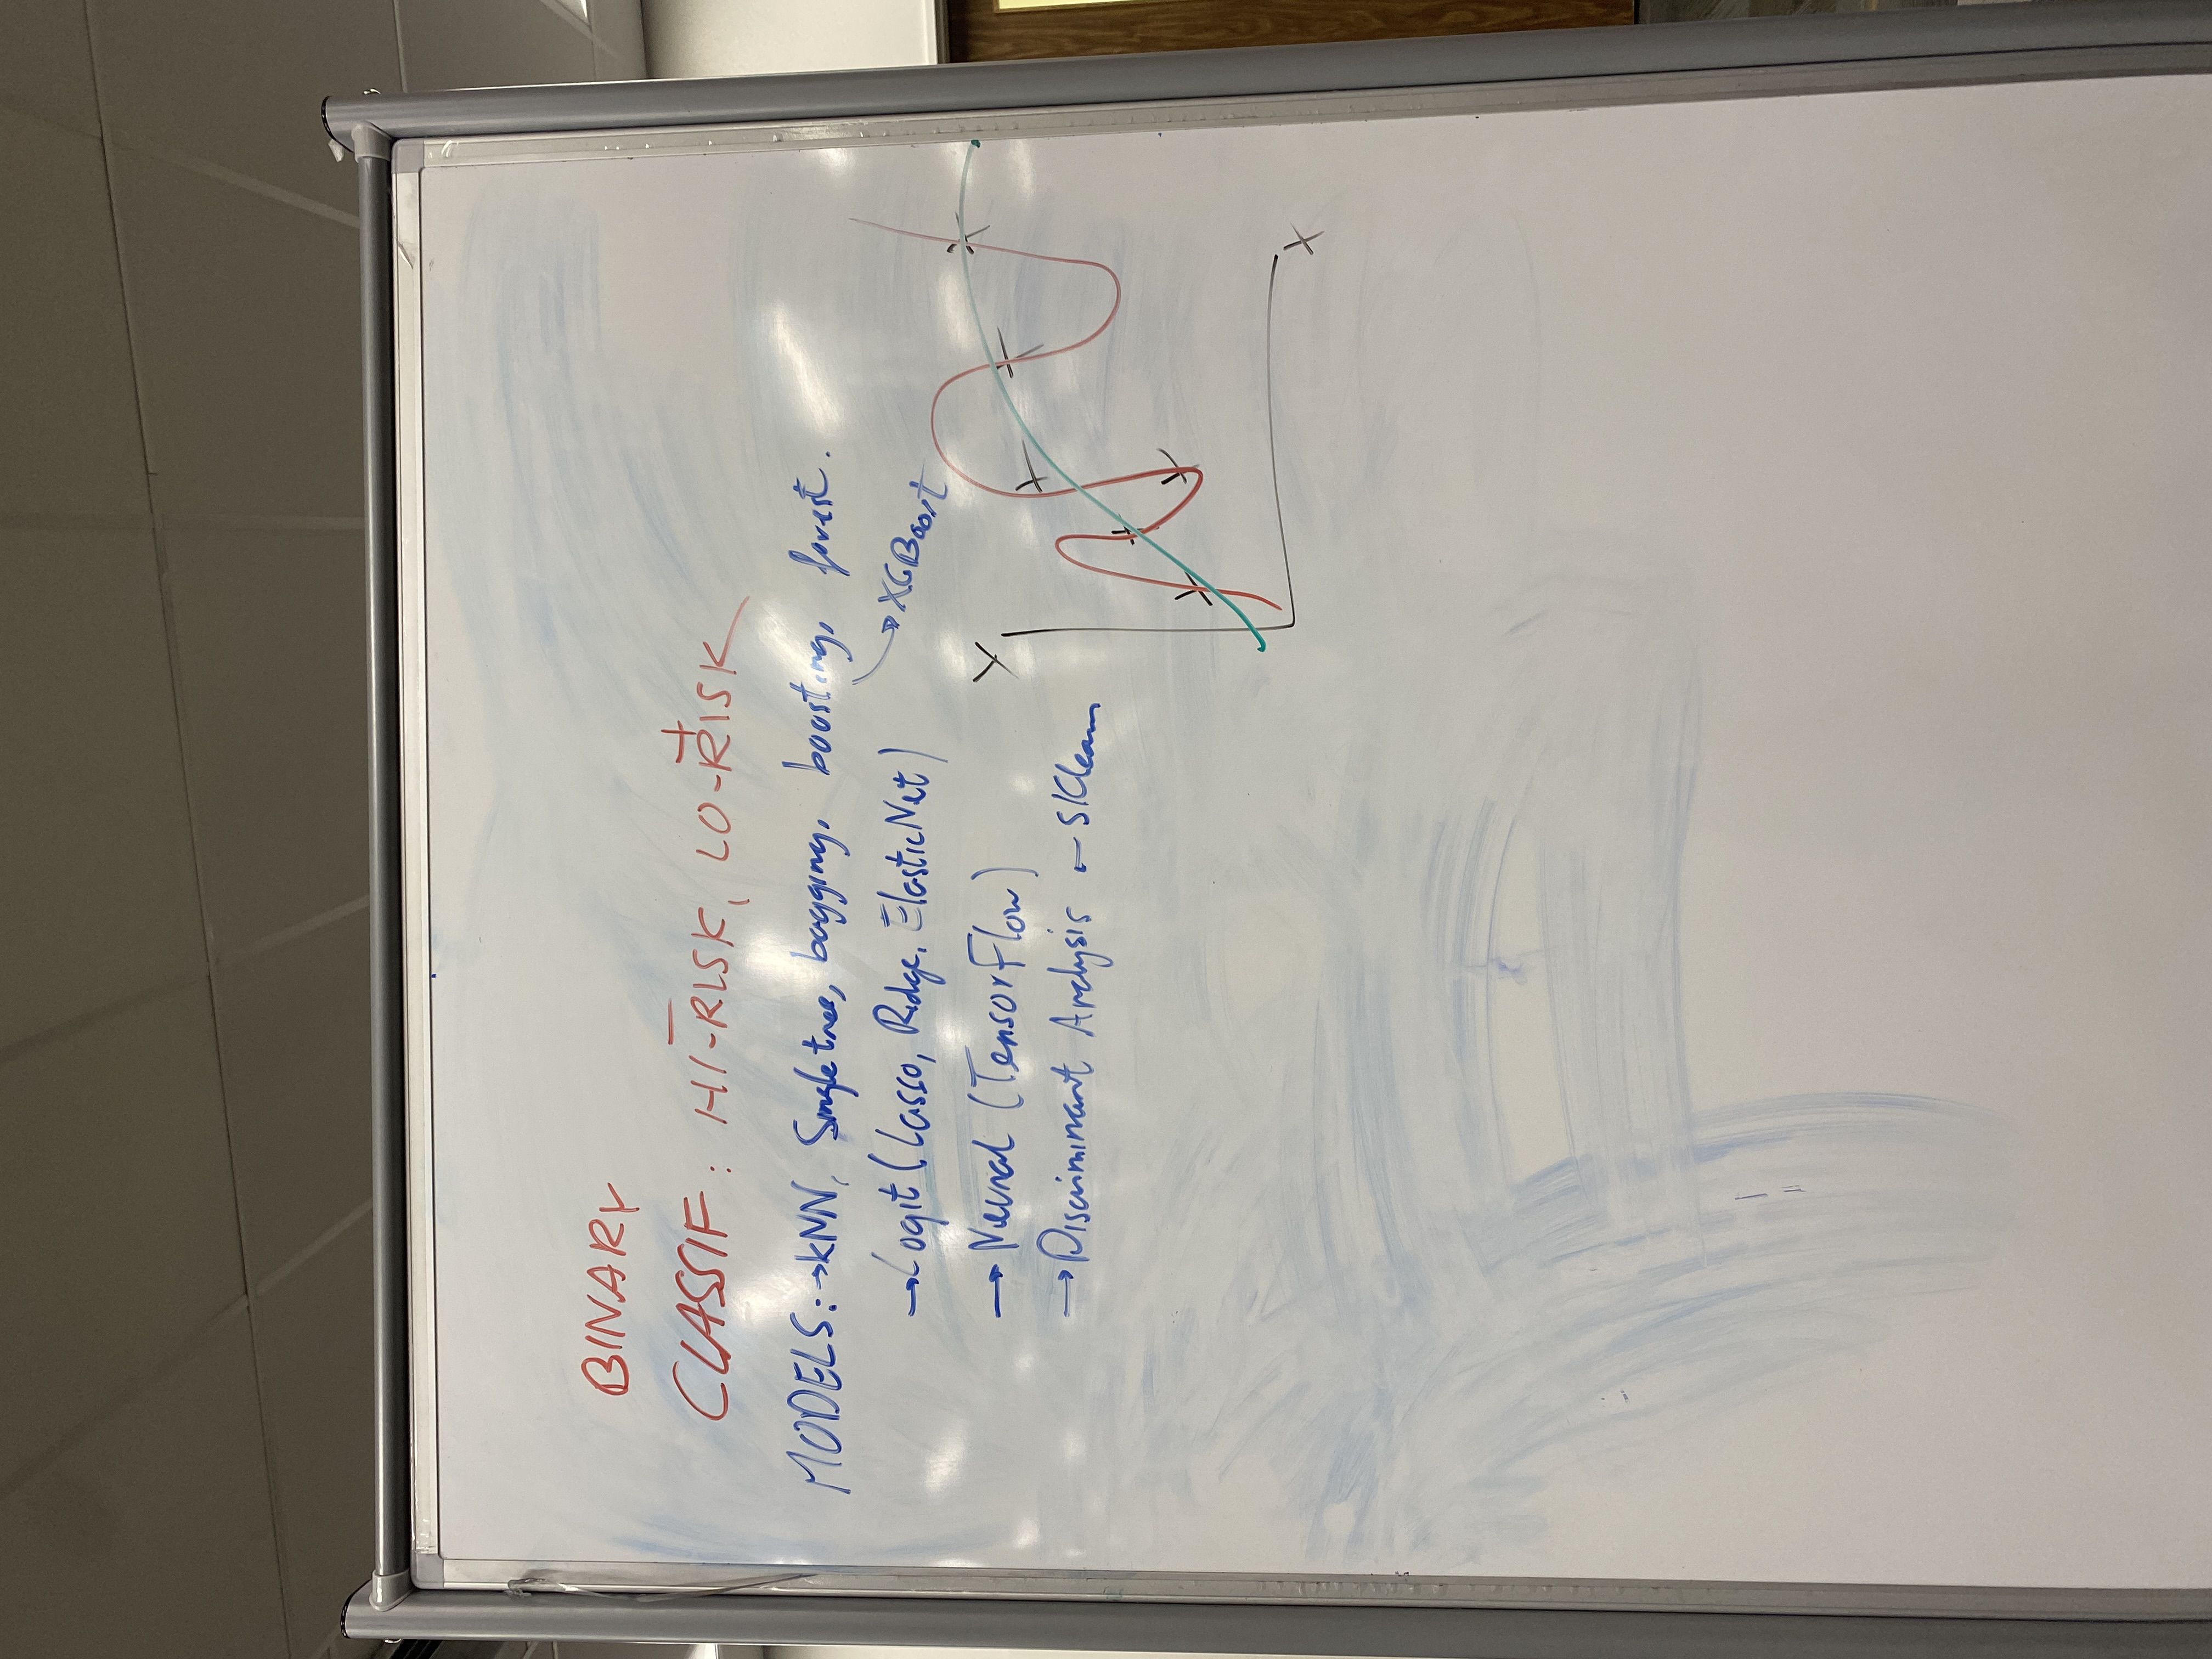 BINARY
− +
CLASSIF: HI-RISK, LO-RISK
MODELS: →kNN, Single tree, bagging, boosting, forest.
→XGBoost
→Logit (Lasso, Ridge, ElasticNet)
→ Neural (TensorFlow)
→ Discriminant Analysis ← SKlearn
Y
X